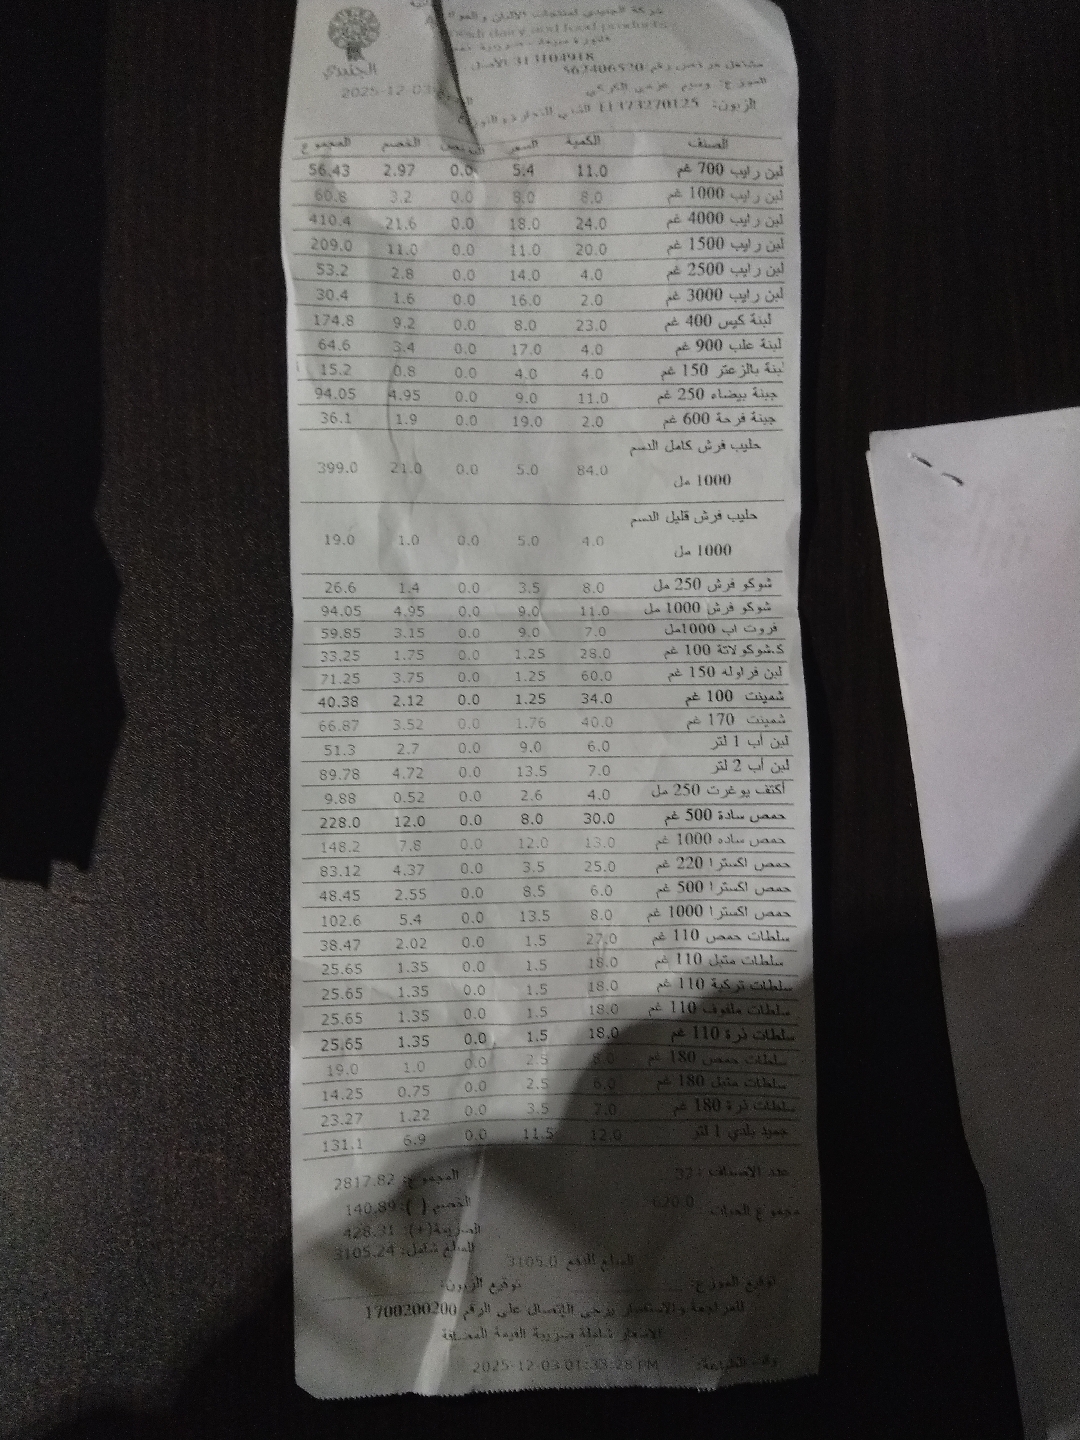 شركة الجنيدي لمنتجات الألبان و
dairy and food products
الجنيدي
فاتورة مبيعات - ضريبية
313104918 الأصل
مشتغل مرخص رقم: 562406520
2025-12-03
الزبون: 11373270125
الصنف الكمية السعر الخصم المجموع
لبن رايب 700 غم 11.0 5.4 0.0 2.97 56.43
لبن رايب 1000 غم 8.0 8.0 0.0 3.2 60.8
لبن رايب 4000 غم 24.0 18.0 0.0 21.6 410.4
لبن رايب 1500 غم 20.0 11.0 0.0 11.0 209.0
لبن رايب 2500 غم 4.0 14.0 0.0 2.8 53.2
لبن رايب 3000 غم 2.0 16.0 0.0 1.6 30.4
لبنة كيس 400 غم 23.0 8.0 0.0 9.2 174.8
لبنة علب 900 غم 4.0 17.0 0.0 3.4 64.6
لبنة بالزعتر 150 غم 4.0 4.0 0.0 0.8 15.2
جبنة بيضاء 250 غم 11.0 9.0 0.0 4.95 94.05
جبنة فرحة 600 غم 2.0 19.0 0.0 1.9 36.1
حليب فرش كامل الدسم
1000 مل 84.0 5.0 0.0 21.0 399.0
حليب فرش قليل الدسم
1000 مل 4.0 5.0 0.0 1.0 19.0
شوكو فرش 250 مل 8.0 3.5 0.0 1.4 26.6
شوكو فرش 1000 مل 11.0 9.0 0.0 4.95 94.05
فروت اب 1000مل 7.0 9.0 0.0 3.15 59.85
ك.شوكولاتة 100 غم 28.0 1.25 0.0 1.75 33.25
لبن فراوله 150 غم 60.0 1.25 0.0 3.75 71.25
شمينت 100 غم 34.0 1.25 0.0 2.12 40.38
شمينت 170 غم 40.0 1.76 0.0 3.52 66.87
لبن أب 1 لتر 6.0 9.0 0.0 2.7 51.3
لبن أب 2 لتر 7.0 13.5 0.0 4.72 89.78
أكتف يوغرت 250 مل 4.0 2.6 0.0 0.52 9.88
حمص سادة 500 غم 30.0 8.0 0.0 12.0 228.0
حمص ساده 1000 غم 13.0 12.0 0.0 7.8 148.2
حمص اكسترا 220 غم 25.0 3.5 0.0 4.37 83.12
حمص اكسترا 500 غم 6.0 8.5 0.0 2.55 48.45
حمص اكسترا 1000 غم 8.0 13.5 0.0 5.4 102.6
سلطات حمص 110 غم 27.0 1.5 0.0 2.02 38.47
سلطات متبل 110 غم 18.0 1.5 0.0 1.35 25.65
سلطات تركية 110 غم 18.0 1.5 0.0 1.35 25.65
سلطات ملفوف 110 غم 18.0 1.5 0.0 1.35 25.65
سلطات ذرة 110 غم 18.0 1.5 0.0 1.35 25.65
سلطات حمص 180 غم 8.0 2.5 0.0 1.0 19.0
سلطات متبل 180 غم 6.0 2.5 0.0 0.75 14.25
سلطات ذرة 180 غم 7.0 3.5 0.0 1.22 23.27
جميد بلدي 1 لتر 12.0 11.5 0.0 6.9 131.1
عدد الاصناف: 37 المجموع: 2817.82
مجموع الحبات: 620.0 الخصم( ): 140.89
الضريبة(+): 428.31
المبلغ شامل: 3105.24
المبلغ للدفع 3105.0
توقيع الموزع: توقيع الزبون:
للمراجعة والاستفسار يرجى الاتصال على الرقم 1700200200
الاسعار شاملة ضريبة القيمة المضافة
وقت الطباعة: 2025-12-03 01:33:28 PM